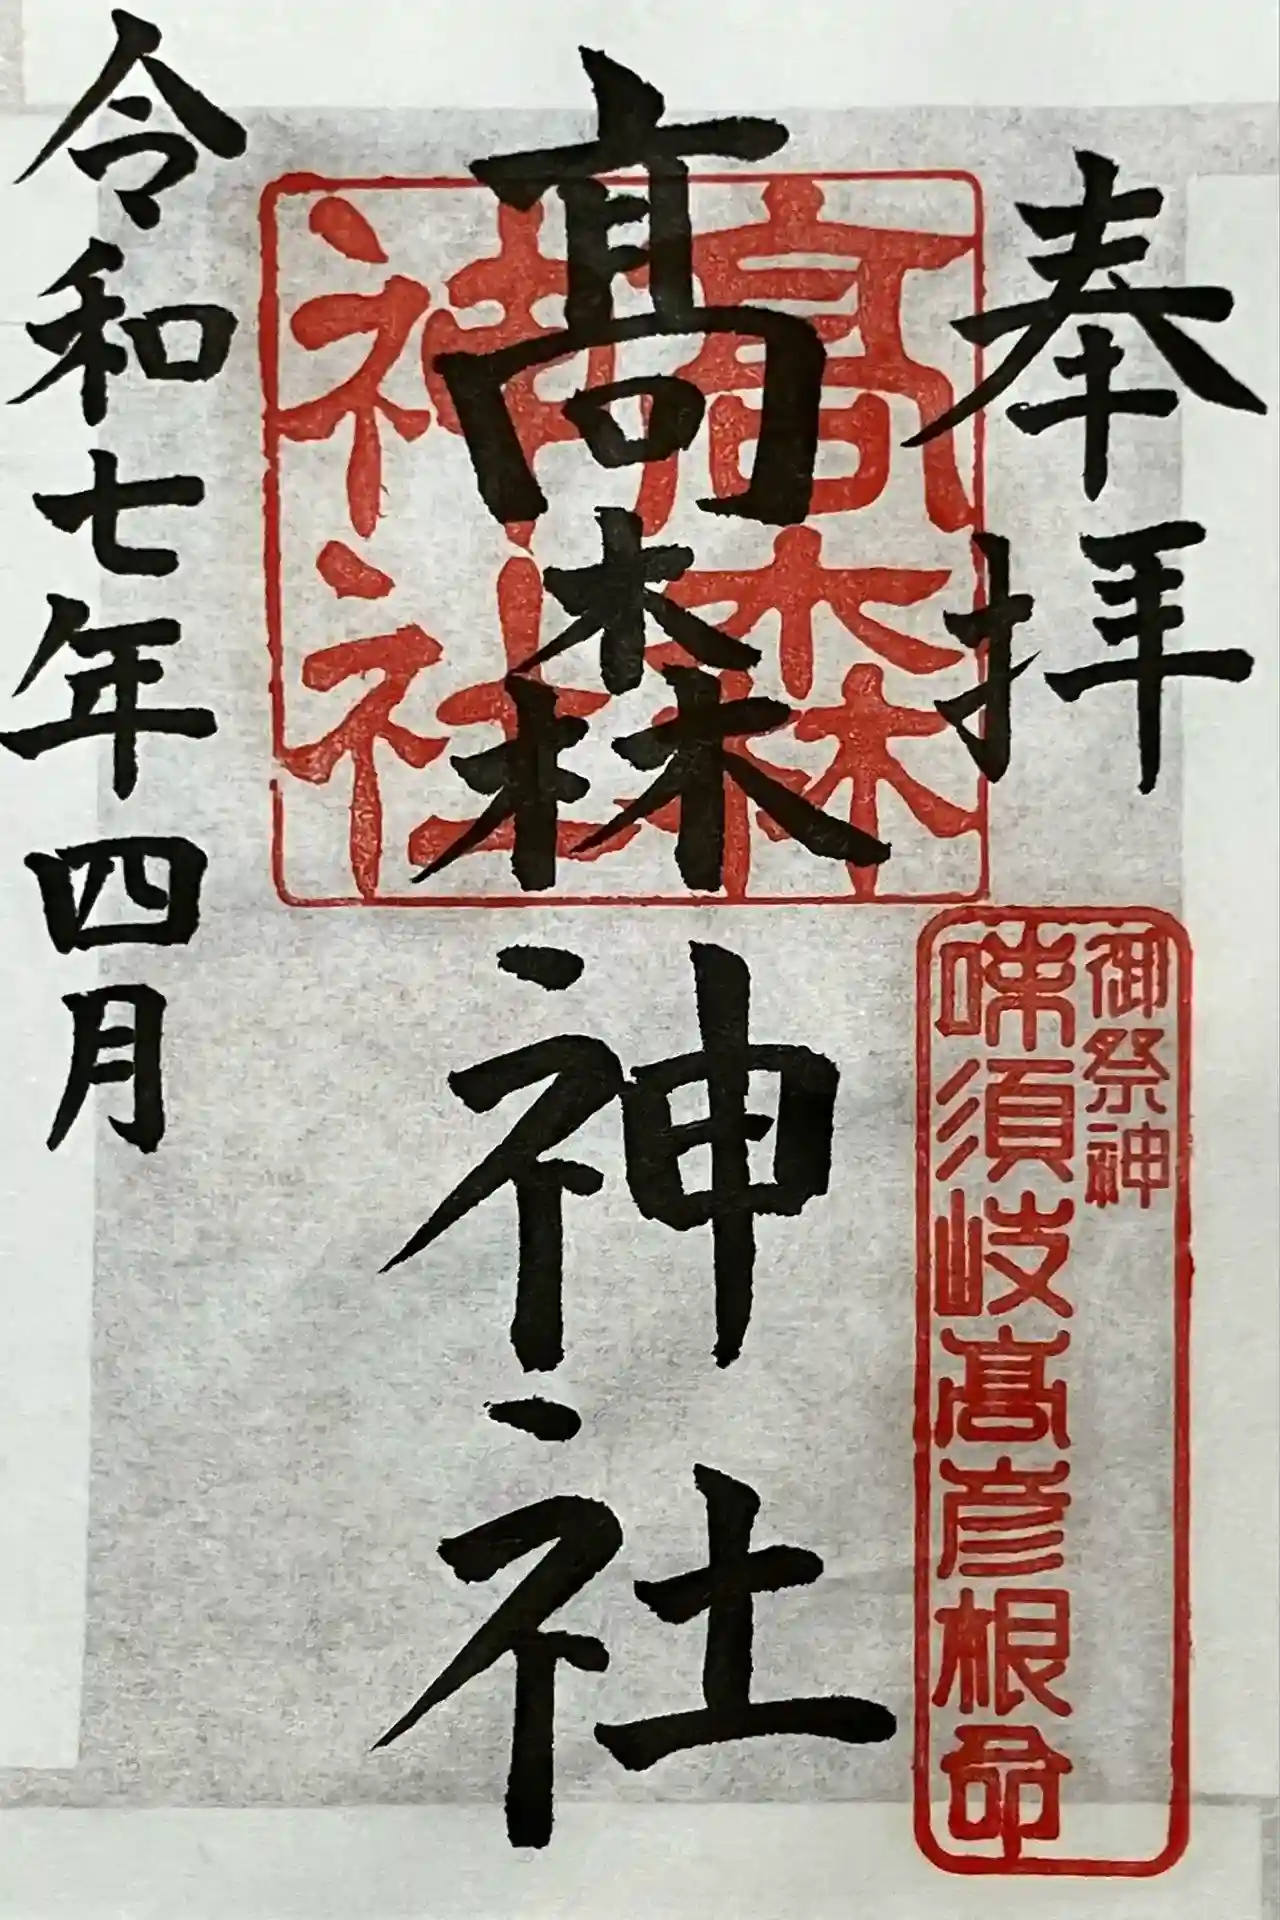 奉拝
髙森神社
髙森
神社
御祭神
味須岐髙彦根命
令和七年四月